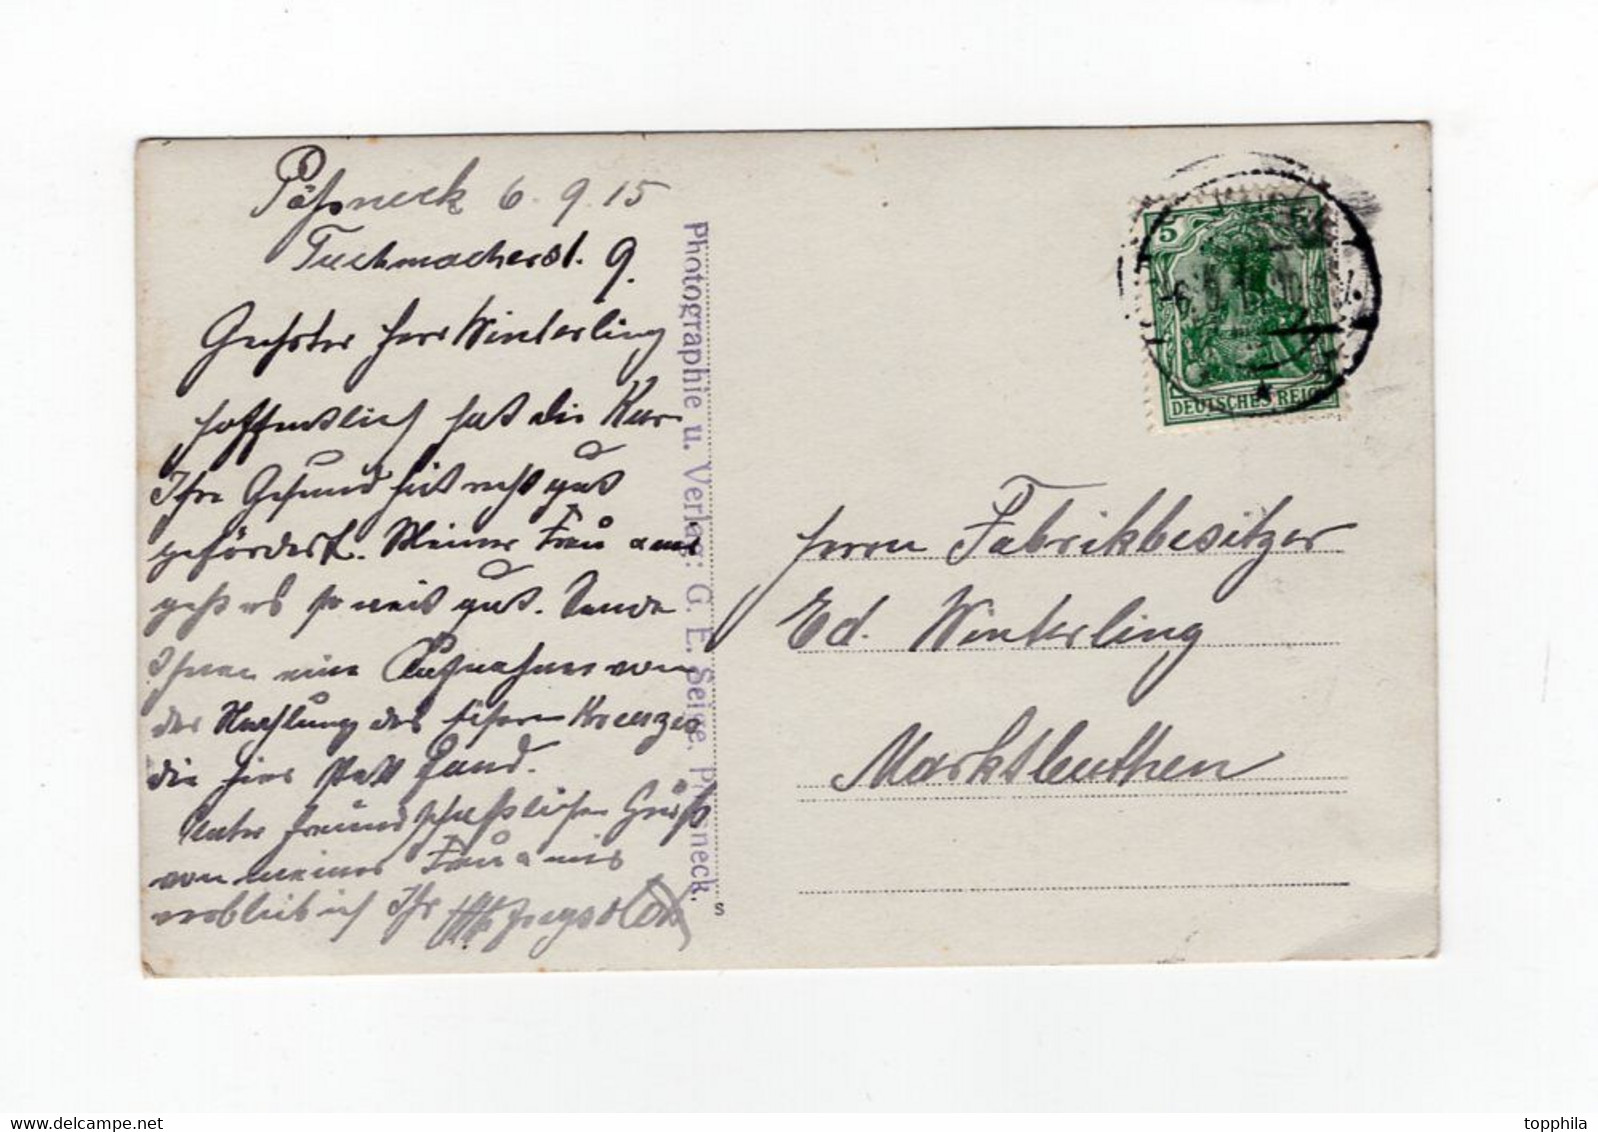 Pößneck 6.9.15
Tuchmacherst. 9.
Geehrter Herr Winterling
hoffentlich hat die Kur
Ihre Gesundheit recht gut
gefördert. Meiner Frau
geht es so weit gut. Sende
Ihnen eine Aufnahme von
der Naglung des Eisern Kreuzes
die hier statt fand.
Unter freundschaftlichen Gruß
von meiner Frau u mir
verbleib ich Ihr
Photographie u. Verlag: G. E. Seige, Pößneck.
s
5
DEUTSCHES REICH
Herrn Fabrikbesitzer
Ed. Winterling
Marktleuthen
topphila
www.delcampe.net